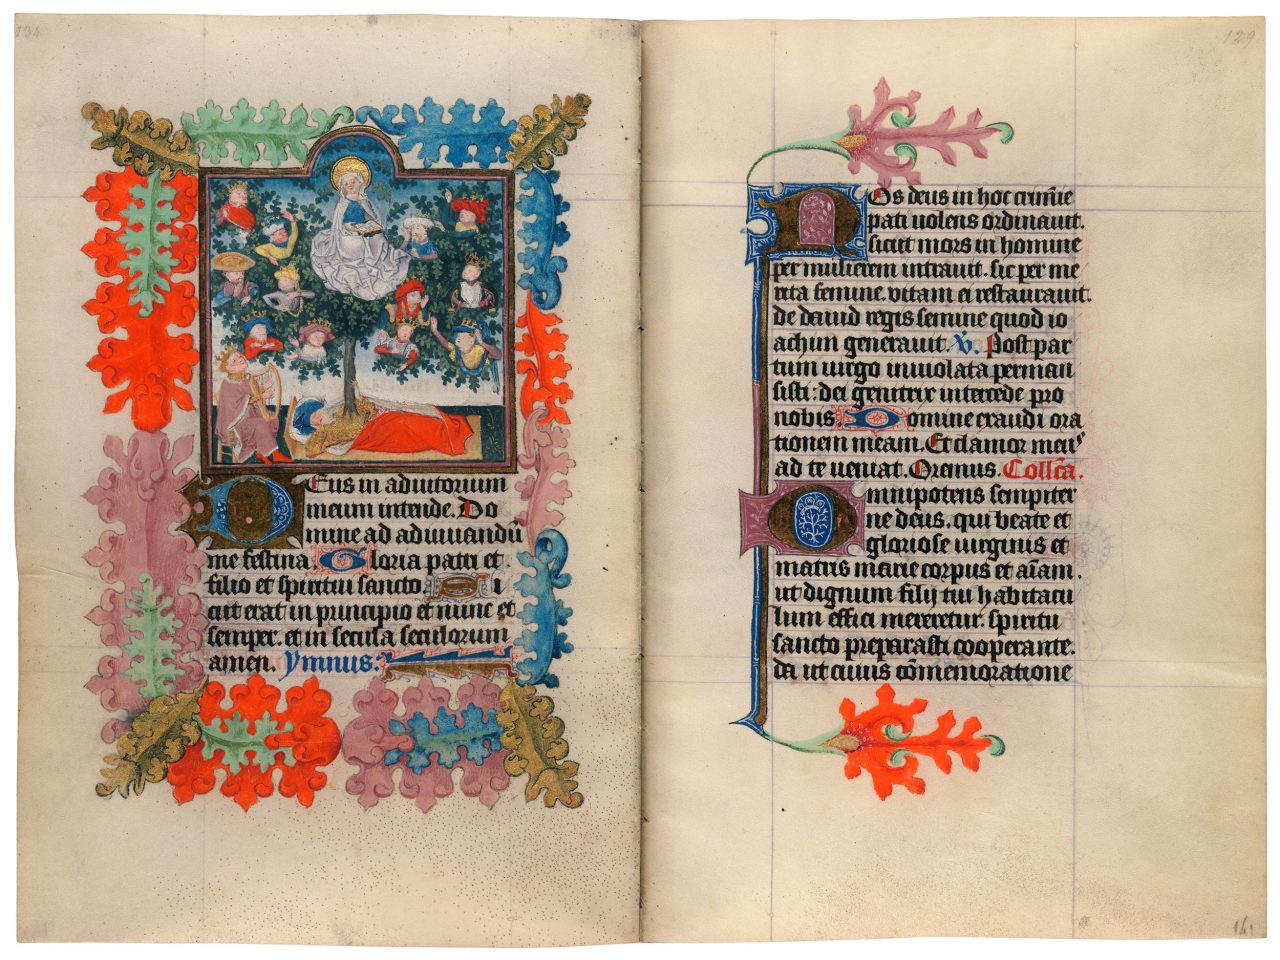 134
Deus in adiutorium
meum intende. Do
mine ad adiuuandū
me festina. Gloria patri et
filio et spiritui sancto. Si
cut erat in principio et nunc et
semper. et in secula seculorum
amen. Ymnus.
129
Nos deus in hoc crimīe
pati nolens ordinauit.
sicut mors in homine
per mulierem intrauit. sic per me
rita femine. vitam ei restaurauit.
de dauid regis semine quod io
achim generauit. V. Post par
tum uirgo inuiolata perman
sisti: dei genitrix intercede pro
nobis Domine exaudi ora
tionem meam. Et clamor meus
ad te ueniat. Oremus. Collca.
Omnipotens sempiter
ne deus. qui beate et
gloriose uirginis et
matris marie corpus et aīam.
ut dignum filij tui habitacu
lum effici mereretur. spiritu
sancto preparasti cooperante.
da ut cuius cōmemoratione